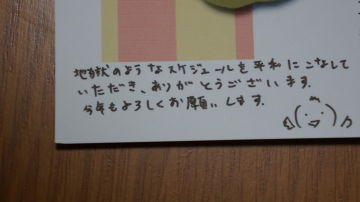 地獄のようなスケジュールを平和にこなして
いただき、ありがとうございます。
今年もよろしくお願いします。